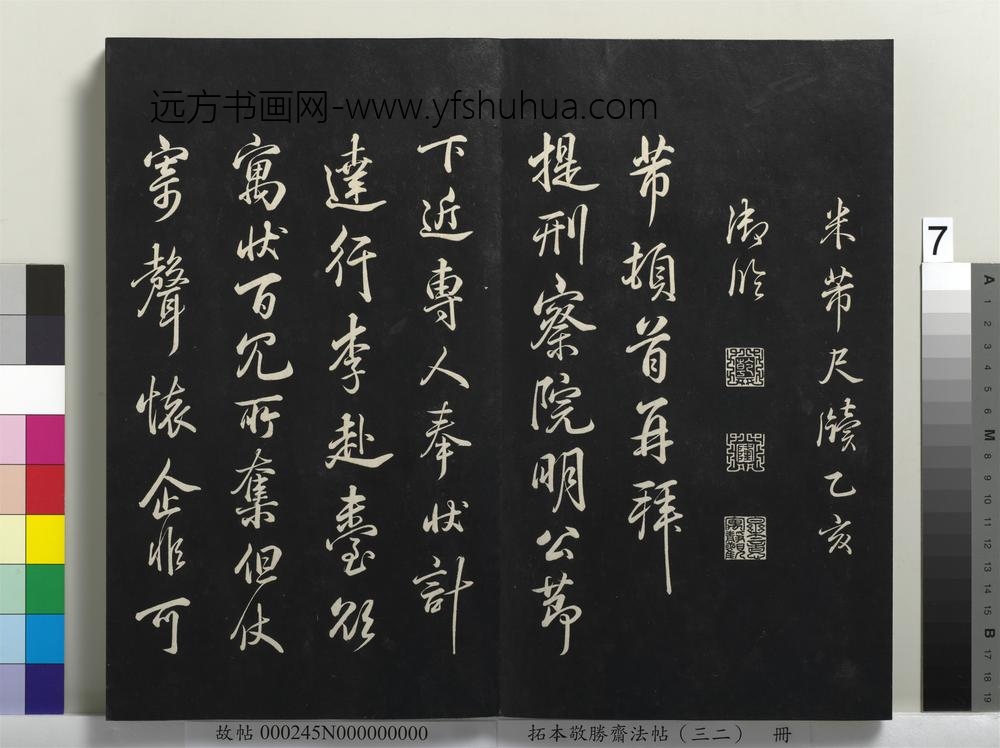 远方书画网-www.yfshuhua.com
米芾尺牘乙亥
御臨
芾頓首再拜
提刑察院明公節
下近專人奉狀計
達行李赴臺欲
寓狀百冗所奪但仗
寄聲懷企非可
7
A
1
2
3
4
5
6
M
8
9
10
11
12
13
14
15
B
17
18
19
故帖 000245N000000000
拓本敬勝齋法帖（三二） 冊